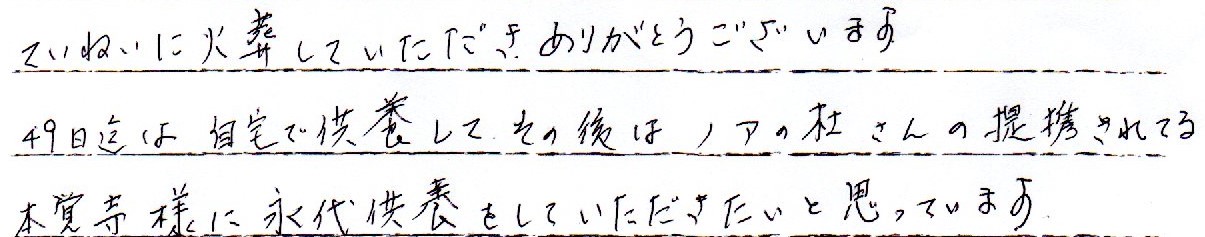 ていねいに火葬していただきありがとうございます
49日迄は自宅で供養してその後はノアの杜さんの提携されてる
本覚寺様に永代供養をしていただきたいと思っています